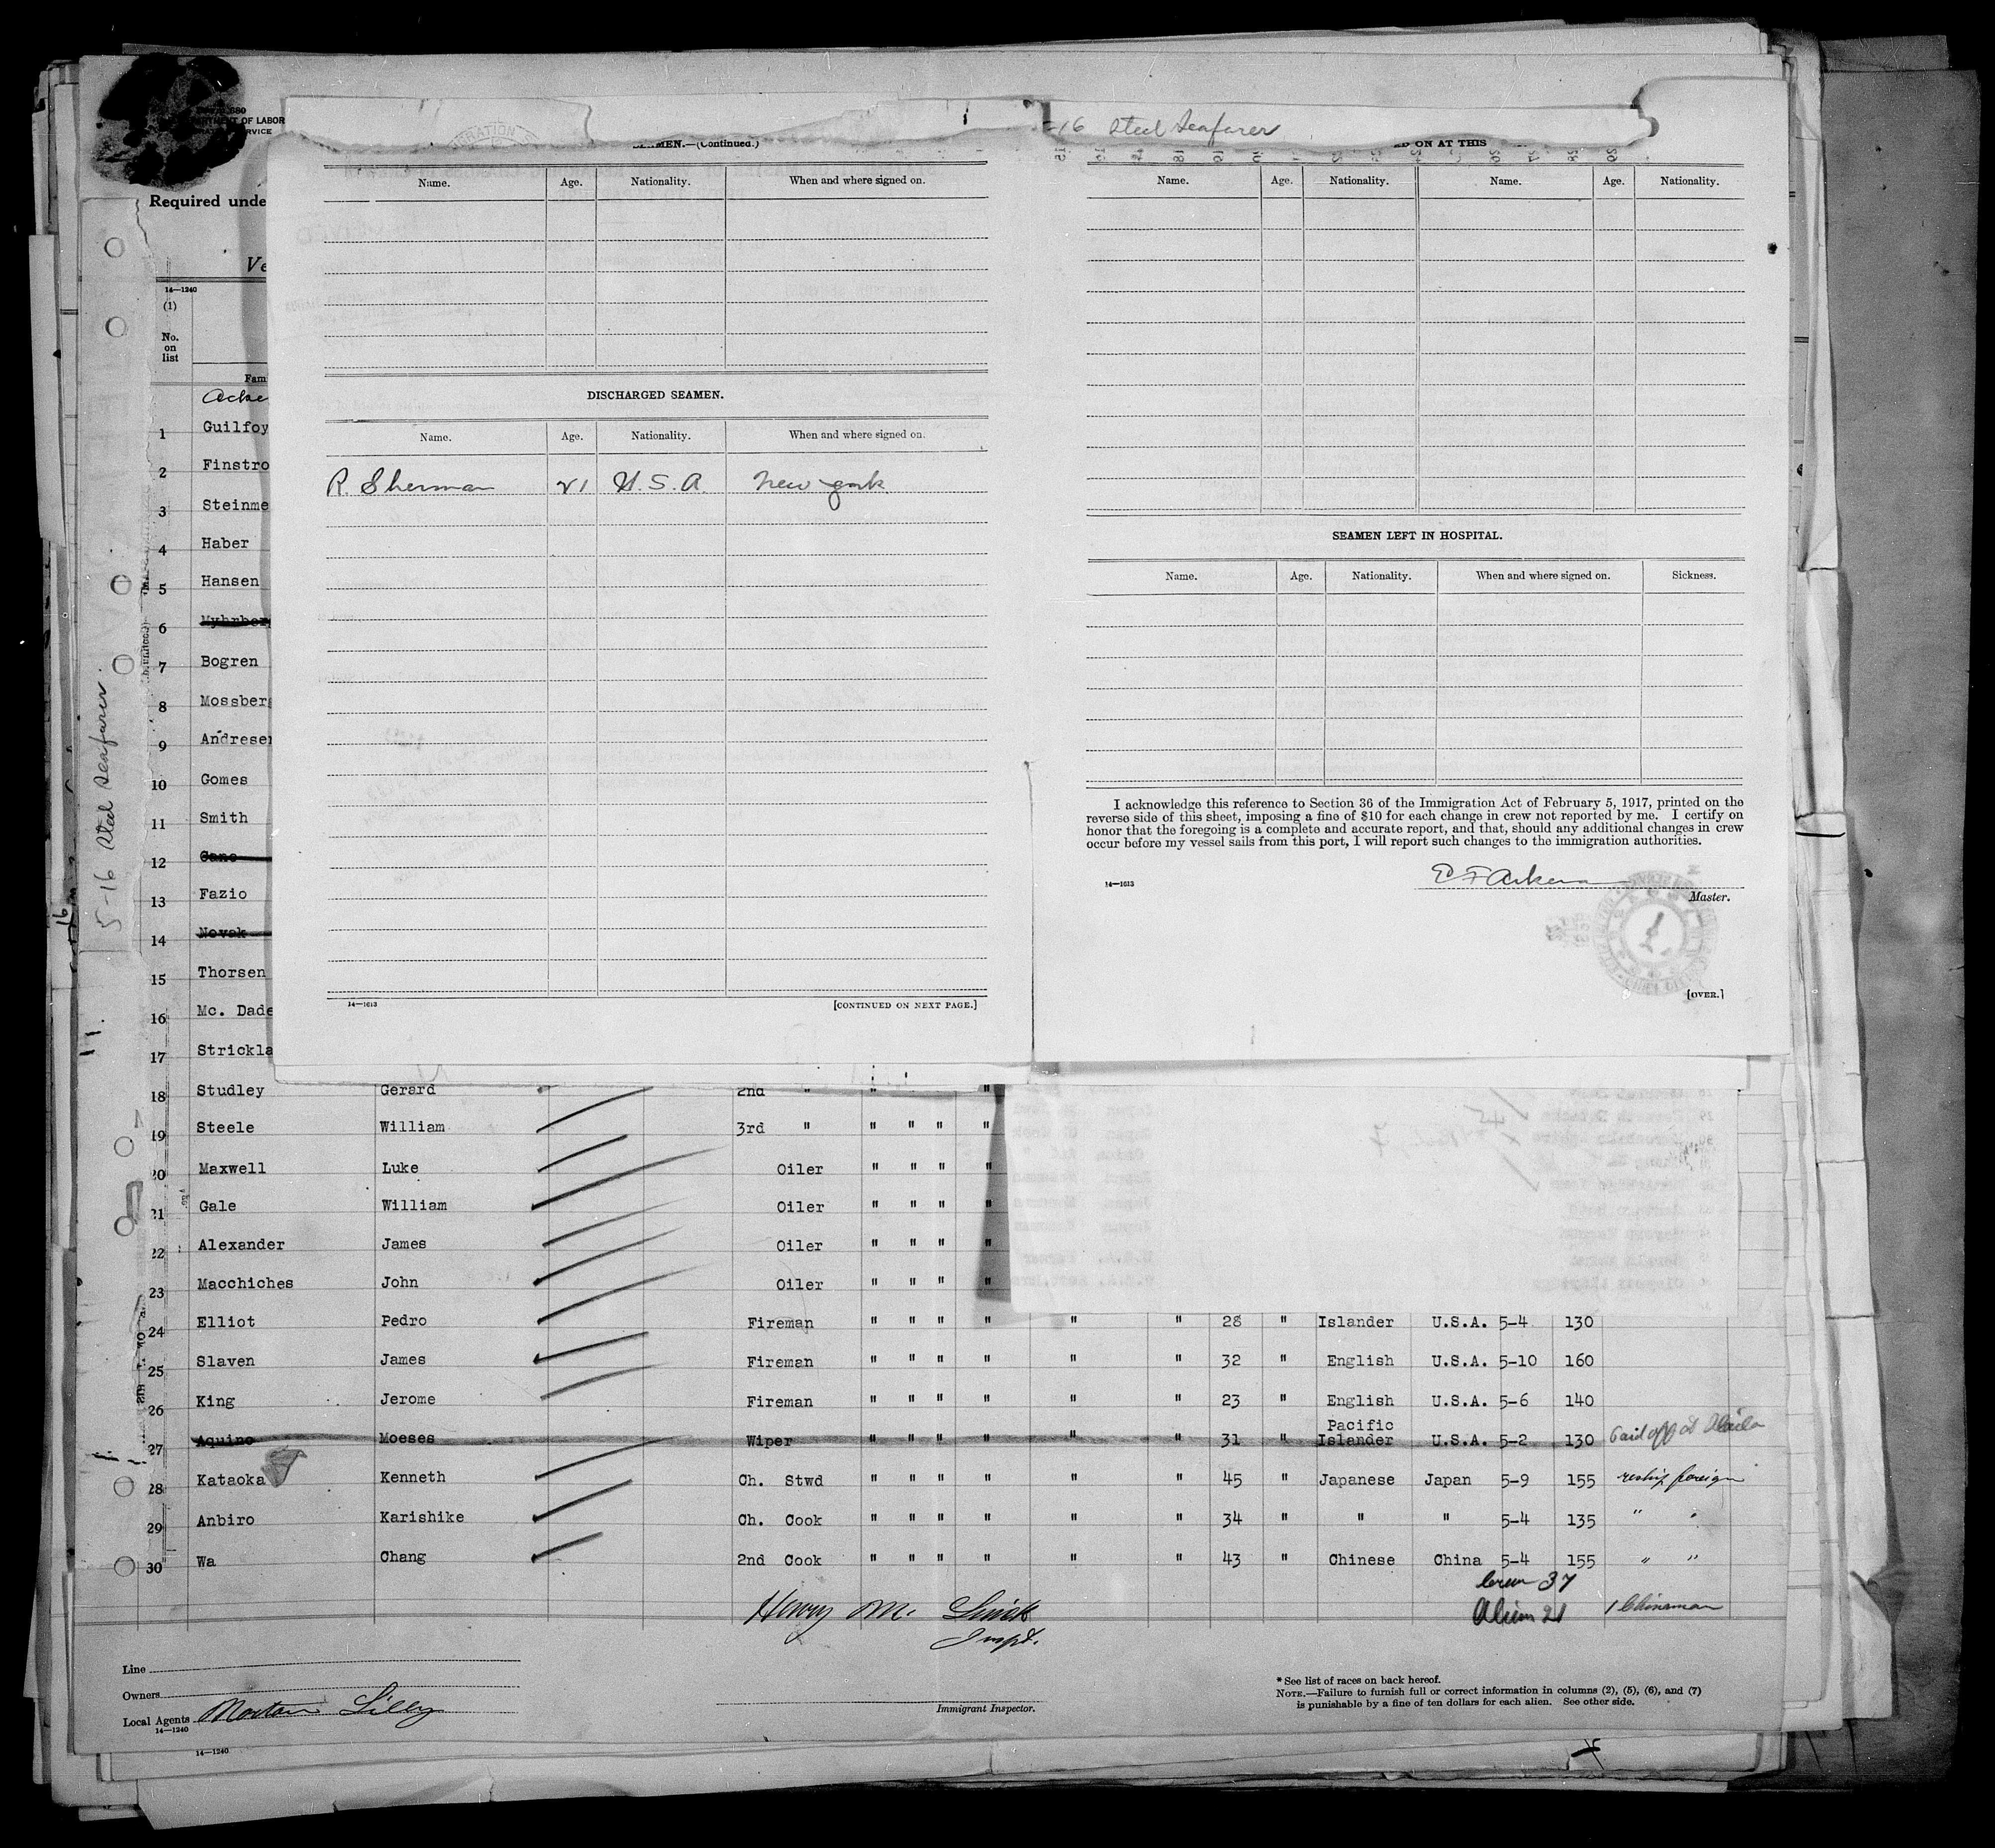 680
DEPARTMENT OF LABOR
SERVICE
Required unde
Ve
14—1240
(1)
No.
on
list
Fam
Acke
1 Guilfoy
2 Finstro
3 Steinme
4 Haber
5 Hansen
6 Myhrber
7 Bogren
8 Mossber
9 Andrese
10 Gomes
11 Smith
12 Cano
13 Fazio
14 Novak
15 Thorsen
16 Mc. Dade
17 Strickla
5-16 Steel Seafarer
-16 Steel Seafarer
MEN.—(Continued.)
Name. Age. Nationality. When and where signed on.
DISCHARGED SEAMEN.
Name. Age. Nationality. When and where signed on.
R. Sherman 21 U.S.A. New York
14—1613 [CONTINUED ON NEXT PAGE.]
D ON AT THIS
Name. Age. Nationality. Name. Age. Nationality.
SEAMEN LEFT IN HOSPITAL.
Name. Age. Nationality. When and where signed on. Sickness.
I acknowledge this reference to Section 36 of the Immigration Act of February 5, 1917, printed on the
reverse side of this sheet, imposing a fine of $10 for each change in crew not reported by me. I certify on
honor that the foregoing is a complete and accurate report, and that, should any additional changes in crew
occur before my vessel sails from this port, I will report such changes to the immigration authorities.
14—1613
Master.
[OVER.]
18 Studley Gerard 2nd " "
19 Steele William 3rd " " " " "
20 Maxwell Luke Oiler " " " "
21 Gale William Oiler " " " "
22 Alexander James Oiler " " " "
23 Macchiches John Oiler " " " "
24 Elliot Pedro Fireman " " " " " " 28 " Islander U.S.A. 5-4 130
25 Slaven James Fireman " " " " " " 32 " English U.S.A. 5-10 160
26 King Jerome Fireman " " " " " " 23 " English U.S.A. 5-6 140
27 Aquino Moeses Wiper " " " " " " 31 " Pacific Islander U.S.A. 5-2 130 Paid off at
28 Kataoka Kenneth Ch. Stwd " " " " " " 45 " Japanese Japan 5-9 155 reship foreign
29 Anbiro Karishike Ch. Cook " " " " " " 34 " " " 5-4 135 " "
30 Wa Chang 2nd Cook " " " " " " 43 " Chinese China 5-4 155 " "
Crew 37
Alien 21 1 Chinaman
Henry M.
Inspt.
Line
Owners
Local Agents Norton Lilly
14—1240
Immigrant Inspector.
* See list of races on back hereof.
NOTE.—Failure to furnish full or correct information in columns (2), (5), (6), and (7)
is punishable by a fine of ten dollars for each alien. See other side.
14—1240